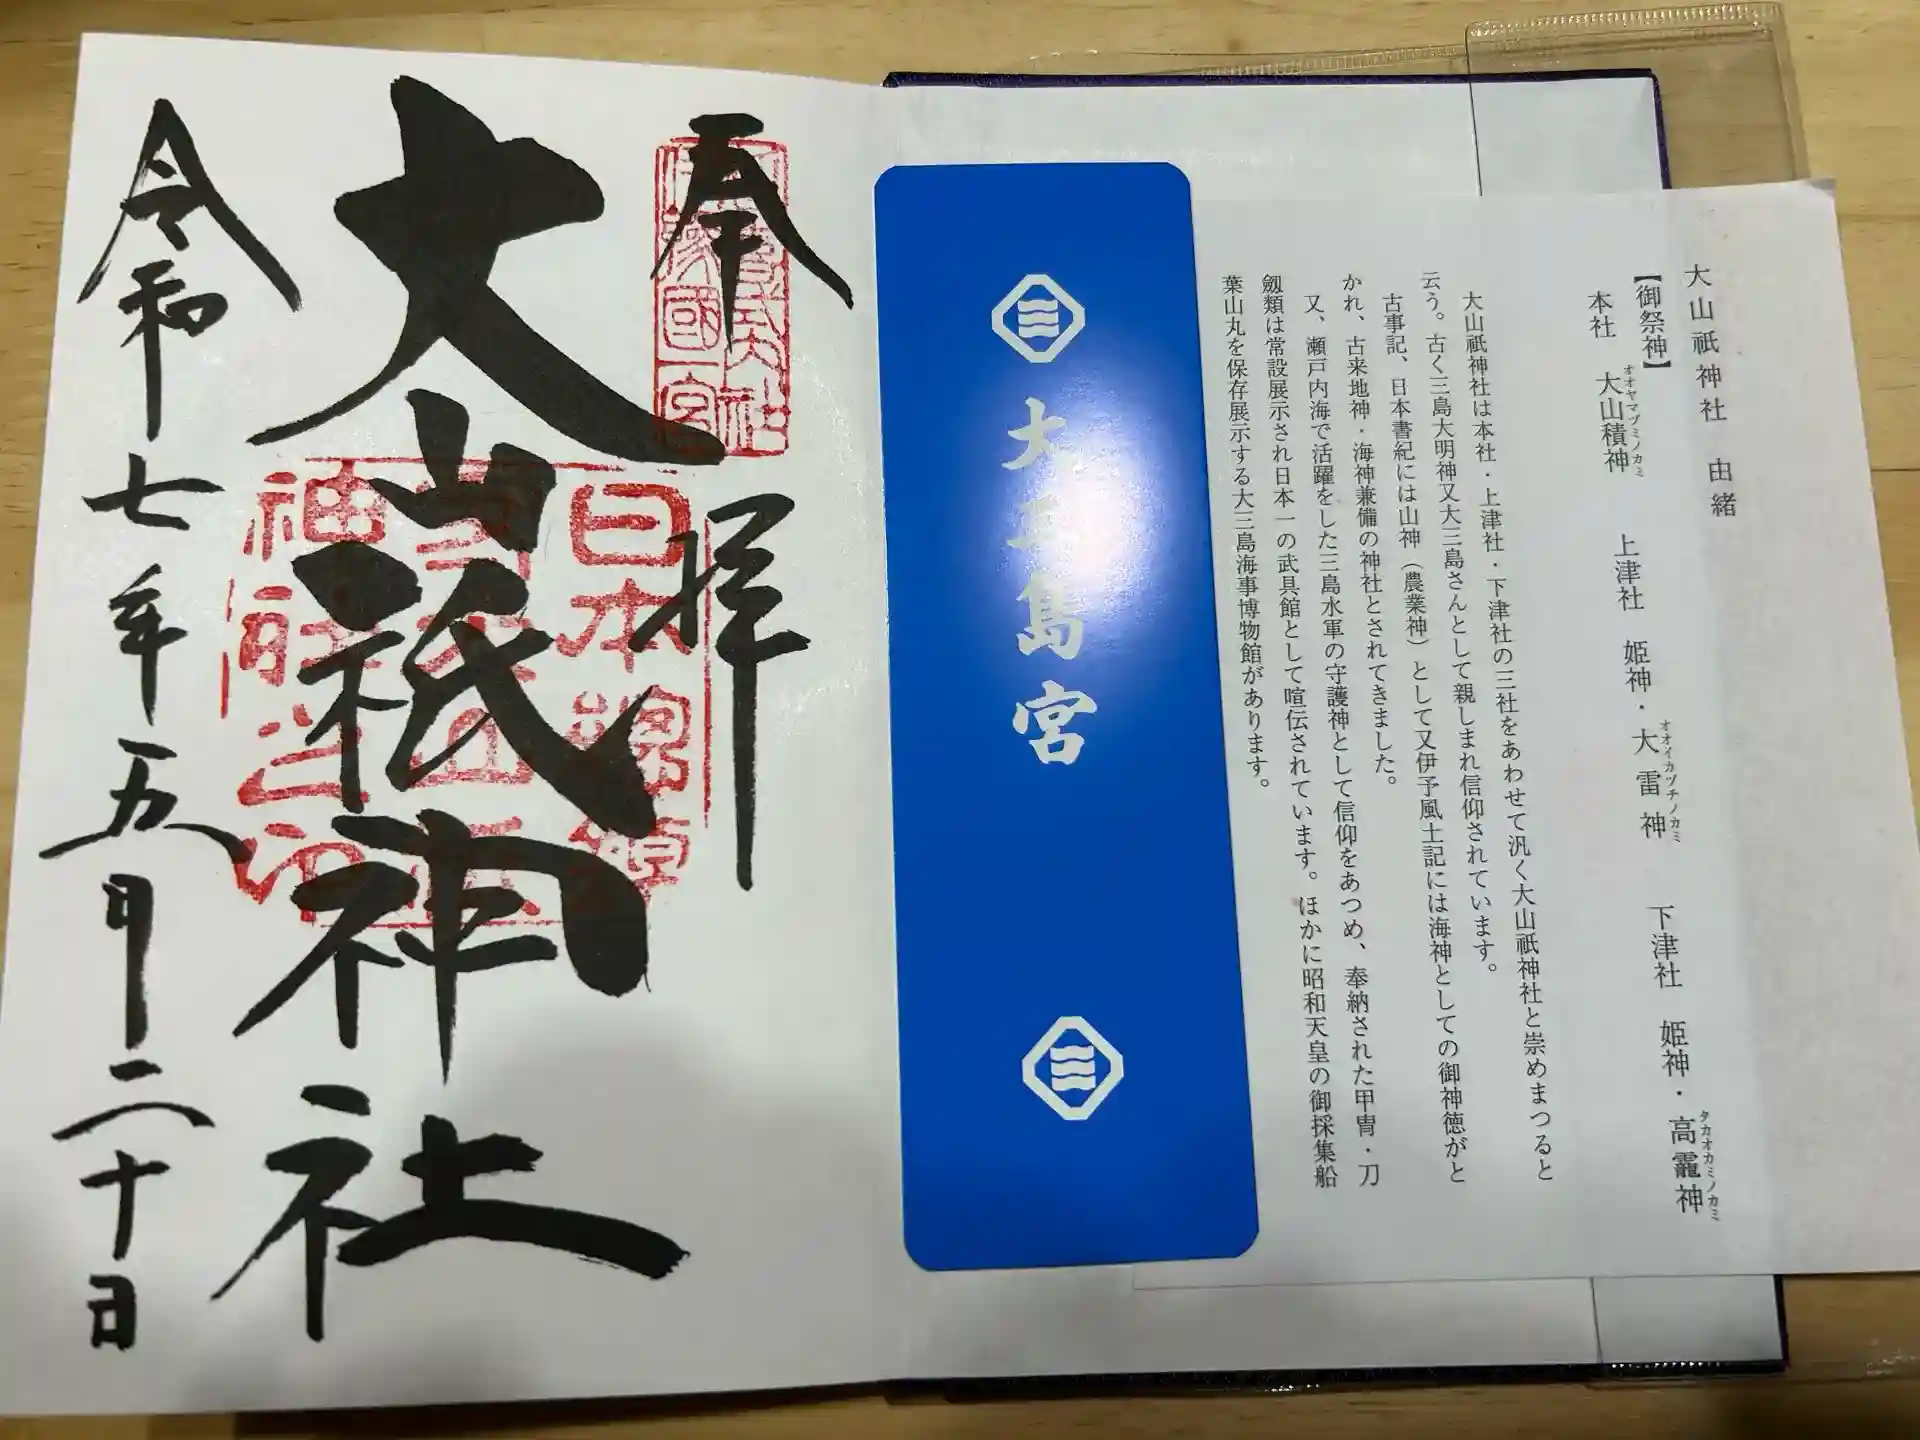 大山祇神社　由緒
【御祭神】
本社　大山積神　上津社　姫神・大雷神　下津社　姫神・高龗神
オオヤマヅミノカミ
オオイカヅチノカミ
タカオカミノカミ
大山祇神社は本社・上津社・下津社の三社をあわせて汎く大山祇神社と崇めまつると
云う。古く三島大明神又大三島さんとして親しまれ信仰されています。
古事記、日本書紀には山神（農業神）として又伊予風土記には海神としての御神徳がと
かれ、古来地神・海神兼備の神社とされてきました。
又、瀬戸内海で活躍をした三島水軍の守護神として信仰をあつめ、奉納された甲冑・刀
剱類は常設展示され日本一の武具館として喧伝されています。ほかに昭和天皇の御採集船
葉山丸を保存展示する大三島海事博物館があります。
大三島宮
奉拝
伊豫國一宮
大山祇神社
日本總鎮
令和七年五月二十日